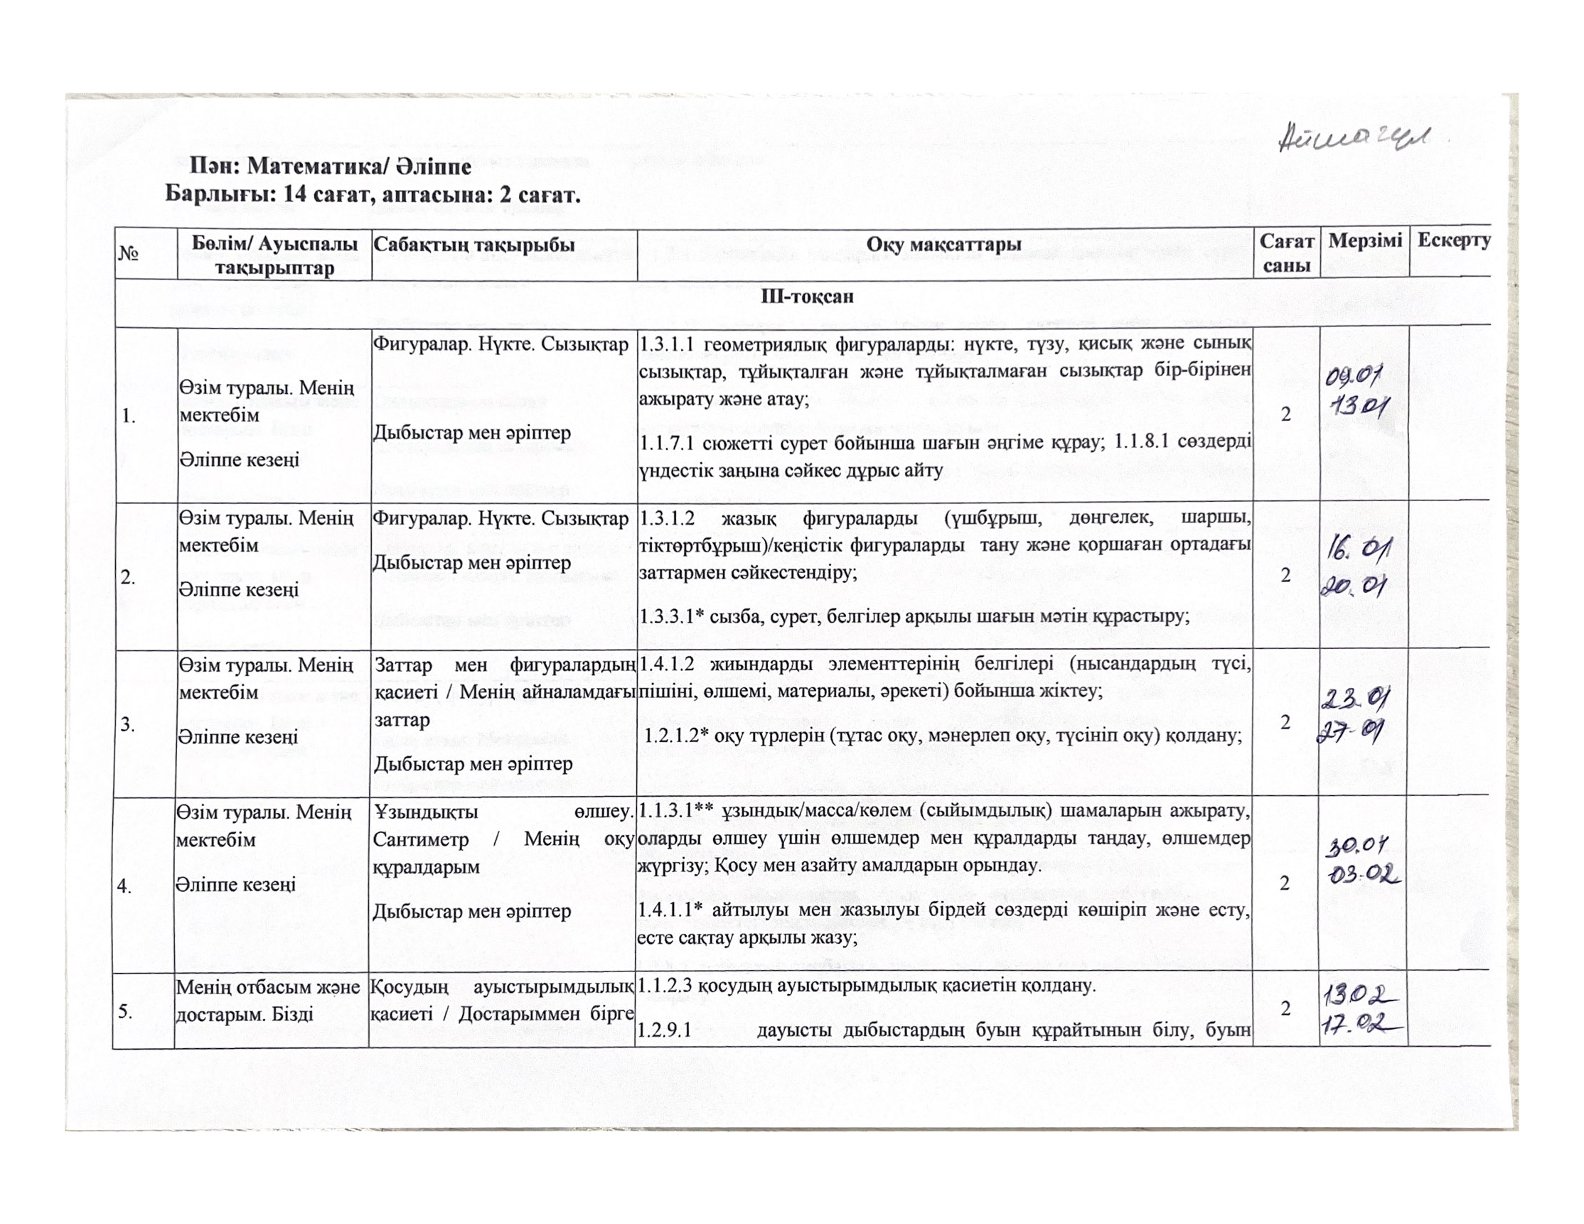 Айшагүл
Пән: Математика/ Әліппе
Барлығы: 14 сағат, аптасына: 2 сағат.
№
Бөлім/ Ауыспалы
тақырыптар
Сабақтың тақырыбы
Оқу мақсаттары
Сағат
саны
Мерзімі
Ескерту
ІІІ-тоқсан
1.
Өзім туралы. Менің
мектебім
Әліппе кезеңі
Фигуралар. Нүкте. Сызықтар
Дыбыстар мен әріптер
1.3.1.1 геометриялық фигураларды: нүкте, түзу, қисық және сынық
сызықтар, тұйықталған және тұйықталмаған сызықтар бір-бірінен
ажырату және атау;
1.1.7.1 сюжетті сурет бойынша шағын әңгіме құрау; 1.1.8.1 сөздерді
үндестік заңына сәйкес дұрыс айту
2
09.01
13 01
2.
Өзім туралы. Менің
мектебім
Әліппе кезеңі
Фигуралар. Нүкте. Сызықтар
Дыбыстар мен әріптер
1.3.1.2 жазық фигураларды (үшбұрыш, дөңгелек, шаршы,
тіктөртбұрыш)/кеңістік фигураларды тану және қоршаған ортадағы
заттармен сәйкестендіру;
1.3.3.1* сызба, сурет, белгілер арқылы шағын мәтін құрастыру;
2
16. 01
20. 01
3.
Өзім туралы. Менің
мектебім
Әліппе кезеңі
Заттар мен фигуралардың
қасиеті / Менің айналамдағы
заттар
Дыбыстар мен әріптер
1.4.1.2 жиындарды элементтерінің белгілері (нысандардың түсі,
пішіні, өлшемі, материалы, әрекеті) бойынша жіктеу;
1.2.1.2* оқу түрлерін (тұтас оқу, мәнерлеп оқу, түсініп оқу) қолдану;
2
23. 01
27 01
4.
Өзім туралы. Менің
мектебім
Әліппе кезеңі
Ұзындықты өлшеу.
Сантиметр / Менің оқу
құралдарым
Дыбыстар мен әріптер
1.1.3.1** ұзындық/масса/көлем (сыйымдылық) шамаларын ажырату,
оларды өлшеу үшін өлшемдер мен құралдарды таңдау, өлшемдер
жүргізу; Қосу мен азайту амалдарын орындау.
1.4.1.1* айтылуы мен жазылуы бірдей сөздерді көшіріп және есту,
есте сақтау арқылы жазу;
2
30.01
03.02
5.
Менің отбасым және
достарым. Бізді
Қосудың ауыстырымдылық
қасиеті / Достарыммен бірге
1.1.2.3 қосудың ауыстырымдылық қасиетін қолдану.
1.2.9.1 дауысты дыбыстардың буын құрайтынын білу, буын
2
13 02
17.02